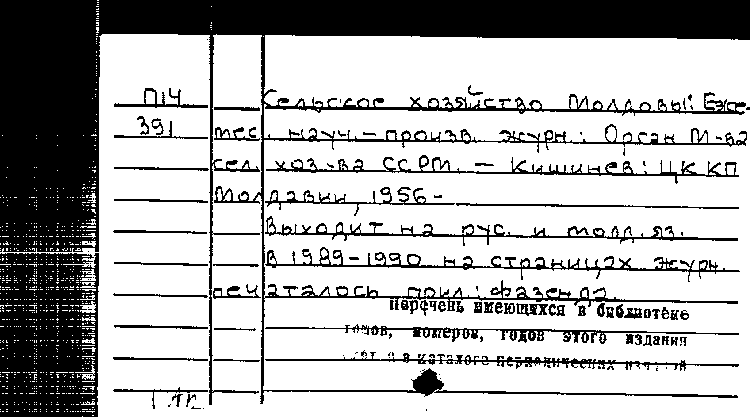 П14 Сельское хозяйство Молдовы: Еже-
391 мес. науч.-произв. журн.: Орган М-ва
сел. хоз-ва ССРМ. – Кишинев: ЦК КП
Молдавии, 1956 -
Выходит на рус. и молд. яз.
В 1989-1990 на страницах журн.
печаталось прил.: Фазенда
Перечень имеющихся в библиотеке
томов, номеров, годов этого издания
в каталоге периодических изданий